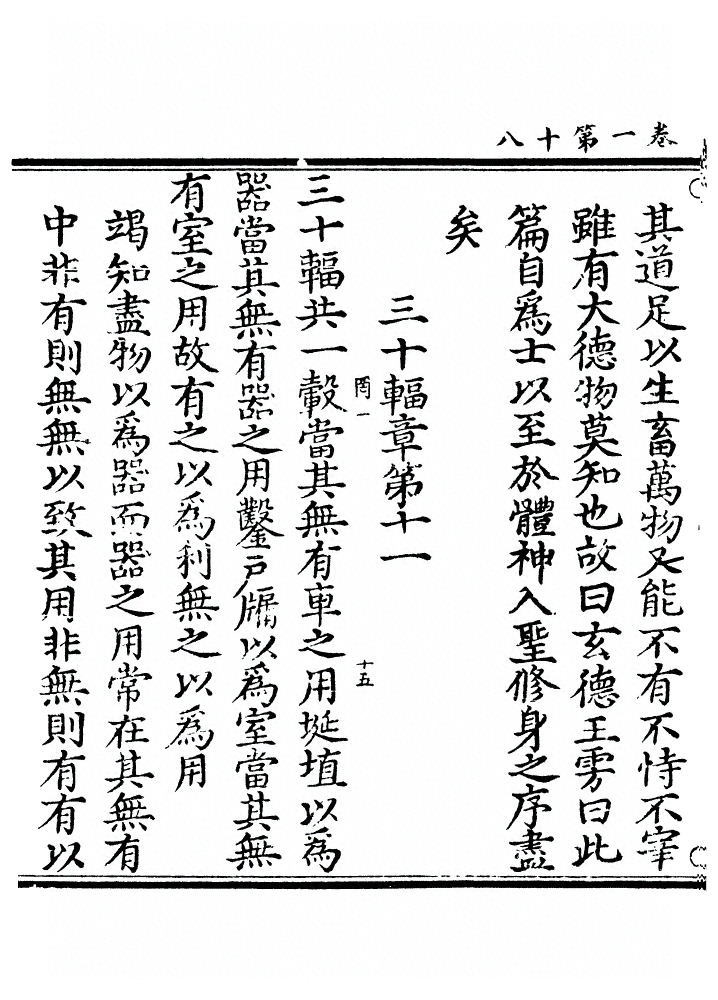 卷一第十八
其道足以生畜萬物又能不有不恃不宰
雖有大德物莫知也故曰玄德王雱曰此
篇自爲士以至於體神入聖修身之序盡
矣
三十輻章第十一
罔一
十五
三十輻共一轂當其無有車之用埏埴以爲
器當其無有器之用鑿戶牖以爲室當其無
有室之用故有之以爲利無之以爲用
竭知盡物以爲器而器之用常在其無有
中非有則無無以致其用非無則有有以